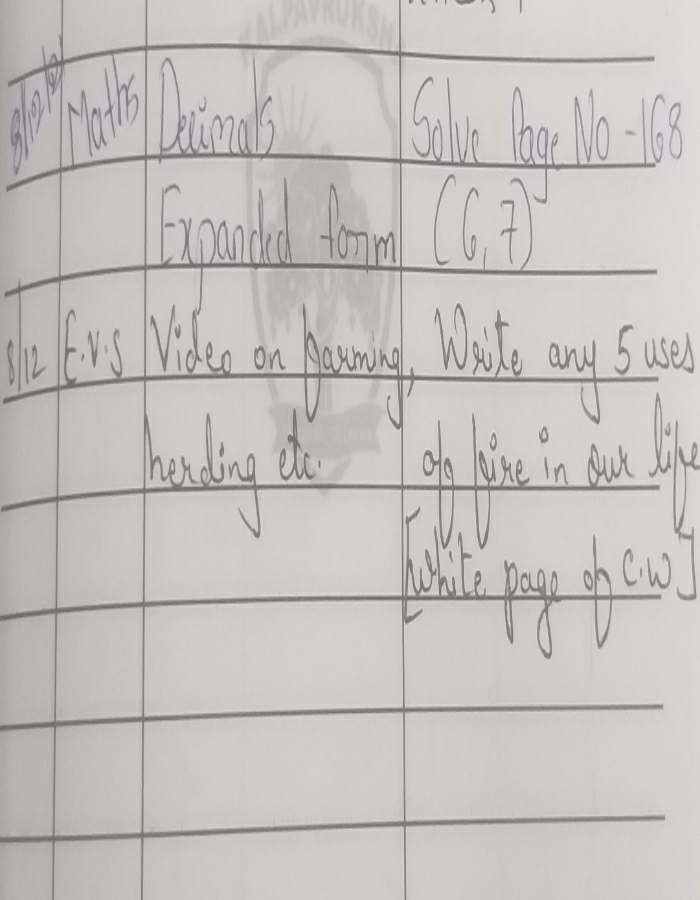 KALPAVRUKSH
8/12 Maths Decimals Solve Page No - 168
Expanded form (6, 7)
8/12 E.V.S Video on farming, Write any 5 uses
herding etc. of fire in our life
[White page of C.W]